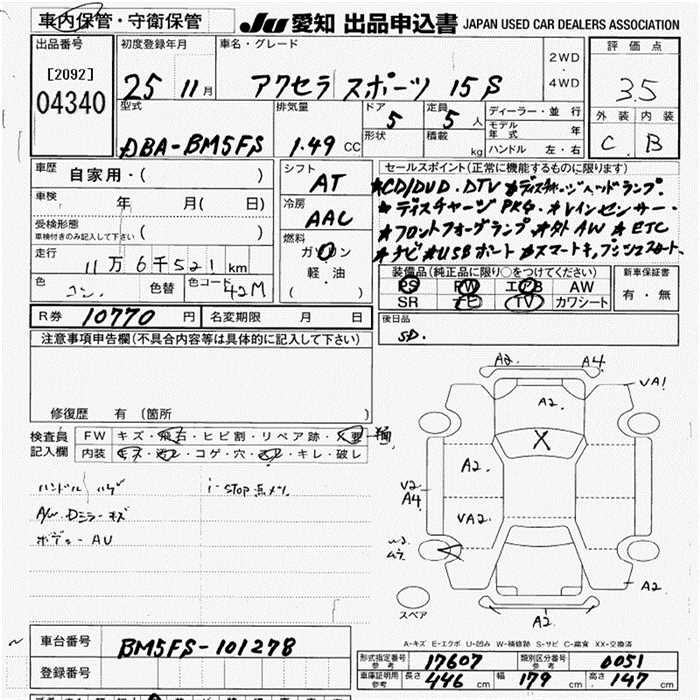 車内保管・守衛保管
JU 愛知 出品申込書 JAPAN USED CAR DEALERS ASSOCIATION
出品番号
[2092]
04340
初度登録年月
25 11月
車名・グレード
アクセラ スポーツ 15S
2WD
・
4WD
評価点
3.5
外装 内装
C B
型式
DBA-BM5FS
排気量
1.49 CC
ドア 5
形状
定員 5 人
積載 kg
ディーラー・並行
モデル年式 年
ハンドル 左・右
車歴
自家用・( )
車検 年 月( 日)
受検形態
車検付きのみ記入して下さい ( )
走行
11万6千521km
色
色替
色コード 42M
シフト
AT
冷房
AAC
燃料
ガソリン
軽油
( )
セールスポイント(正常に機能するものに限ります)
★CD/DVD・DTV ★ディスチャージヘッドランプ・
★ディスチャージPKG・★レインセンサー・
★フロントフォグランプ ★外AW ★ETC
★ナビ ★USBポート ★スマートキィプッシュスタート
装備品(純正品に限り○をつけてください)
PS PW エアB AW
SR ナビ TV カワシート
新車保証書
有・無
R券 10770 円 名変期限 月 日
後日品
SD.
注意事項申告欄(不具合内容等は具体的に記入して下さい)
修復歴 有(箇所 )
検査員
記入欄
FW キズ・飛石・ヒビ割・リペア跡・X要
内装 キズ・汚レ・コゲ・穴・キレ・破レ
ハンドル ハゲ i-stop点メツ
A/W. Dミラーキズ
ボデー AU
A2. A4.
VA1
A2.
X
A2.
V2
A4
VA2.
ムラ
A2
A2.
スペア
A-キズ E-エクボ U-凹み W-補修跡 S-サビ C-腐食 XX-交換済
車台番号 BM5FS-101278
登録番号
形式指定番号 参考 17607 類別区分番号 参考 0051
車庫証明用 参考 長さ 446 cm 幅 179 cm 高さ 147 cm